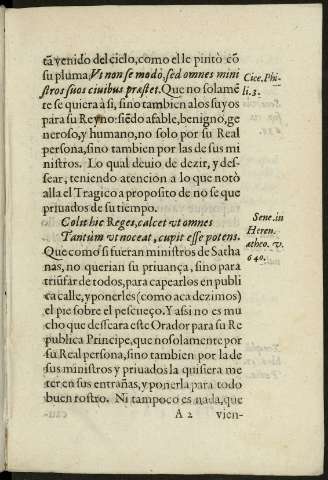 tā venido del cielo, como el le pintò cō
su pluma. Vt non se modò, sed omnes mini
stros suos ciuibus præstet. Que no solamē
te se quiera à si, sino tambien a los suyos
para su Reyno: siēdo afable, benigno, ge
neroso, y humano, no solo por su Real
persona, sino tambien por las de sus mi
nistros. Lo qual deuio de dezir, y des-
sear, teniendo atención a lo que notò
alla el Tragico a proposito de no se que
priuados de su tiempo.
Colit hic Reges, calcet vt omnes
Tantùm vt noceat, cupit esse potens.
Que como si fueran ministros de Satha
nas, no querian su priuança, sino para
triūfar de todos, para capearlos en publi
ca calle, y ponerles (como aca dezimos)
el pie sobre el pescueço. Y assi no es mu
cho que desseara este Orador para su Re
publica Principe, que no solamente por
su Real persona, sino tambien por la de
sus ministros y priuados la quisiera me
ter en sus entrañas, y ponerla para todo
buen rostro. Ni tampoco es nada, que
A 2 vien-
Cice. Phi-
li. 3.
Sene. in
Heren.
ætheo. v.
640.